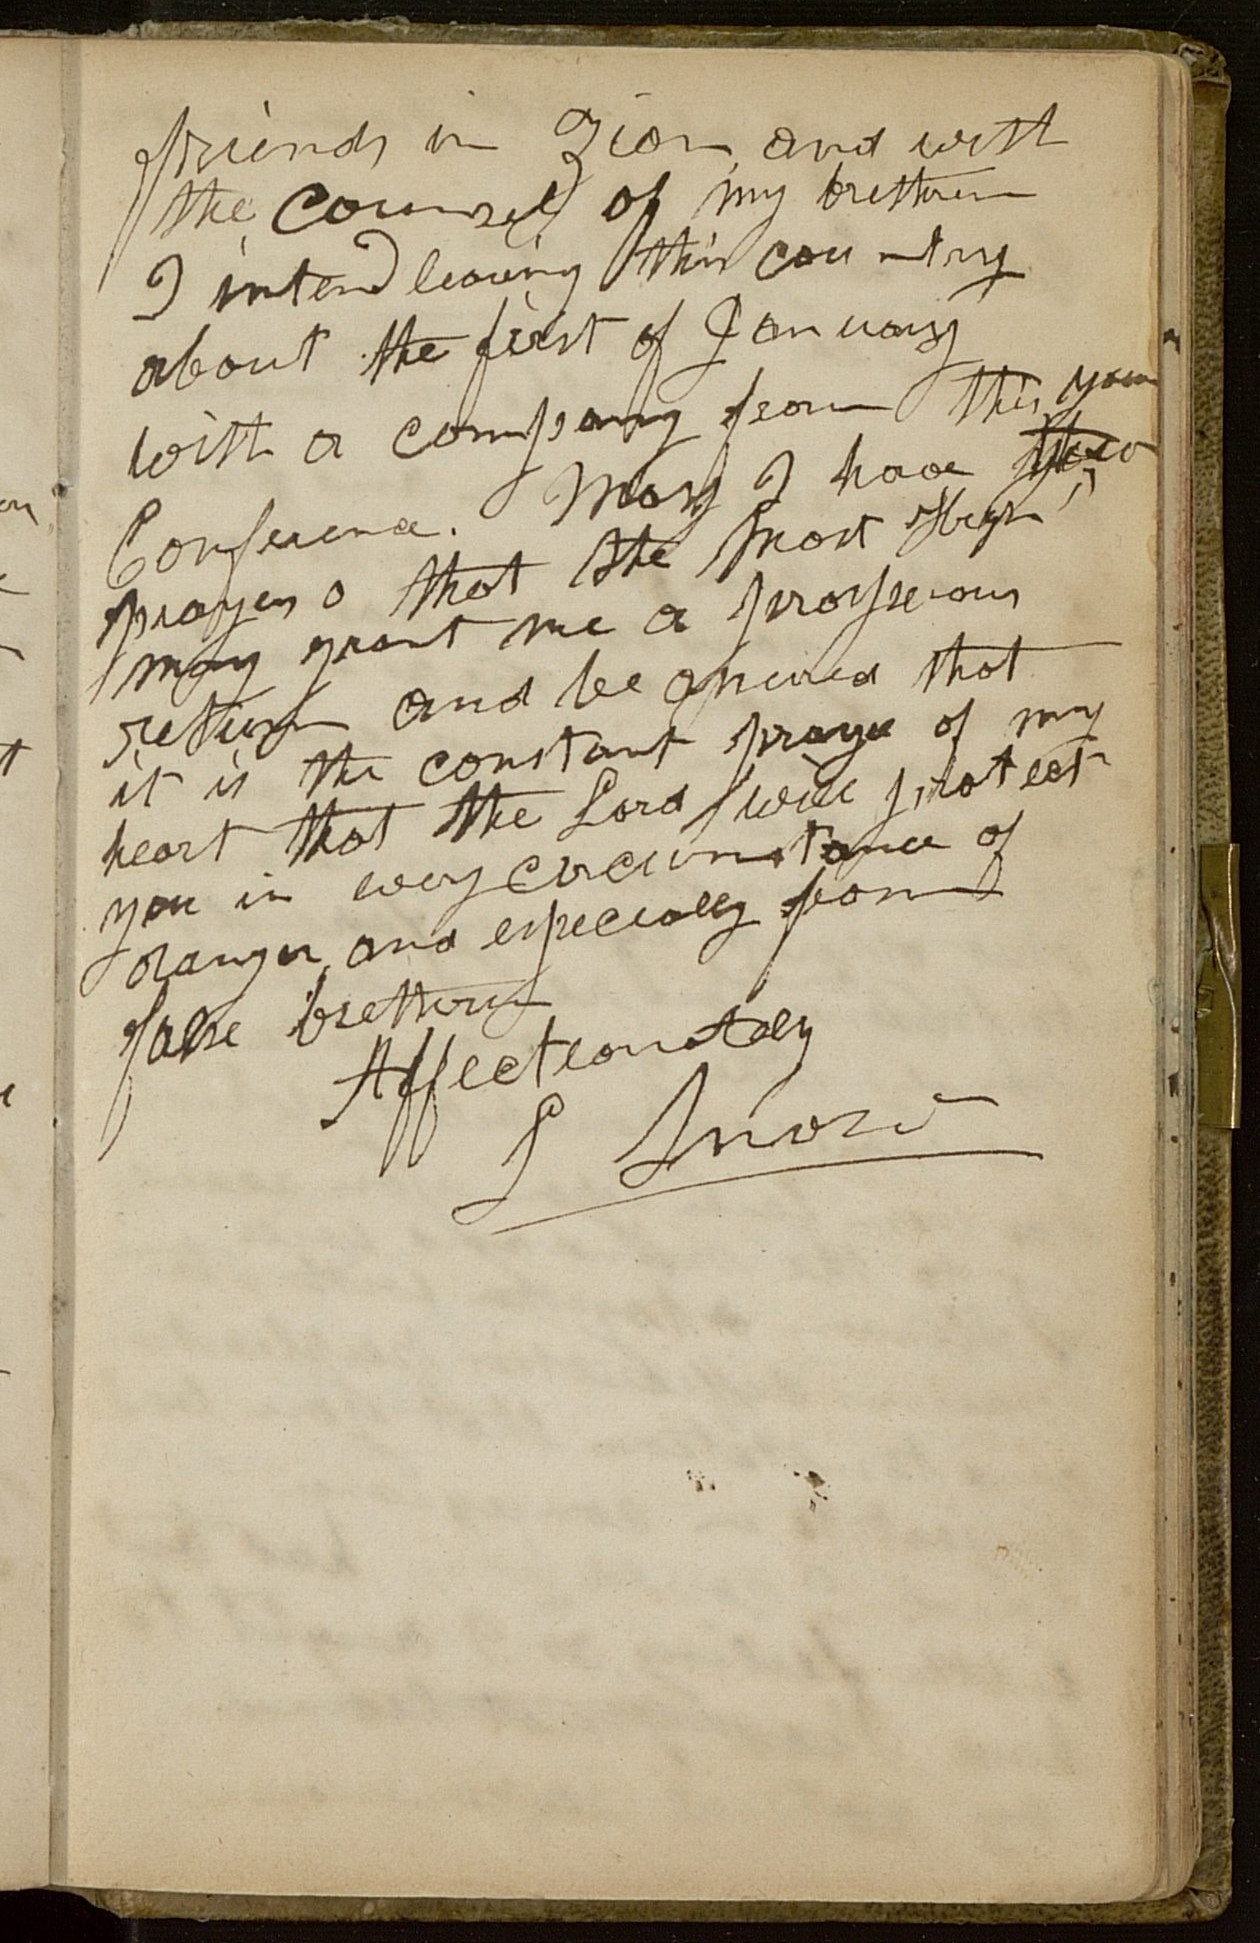 friends in Zion, and with
the Counsel of my brethren
I intend leaving this country
about the first of January
with a company from this
Conference. May I have your
prayers that the Most High
may grant me a prosperous
return and be assured that
it is the constant prayer of my
heart that the Lord will protect
you in every circumstance of
danger, and especially from
false brethren
Affectionately
L Snow